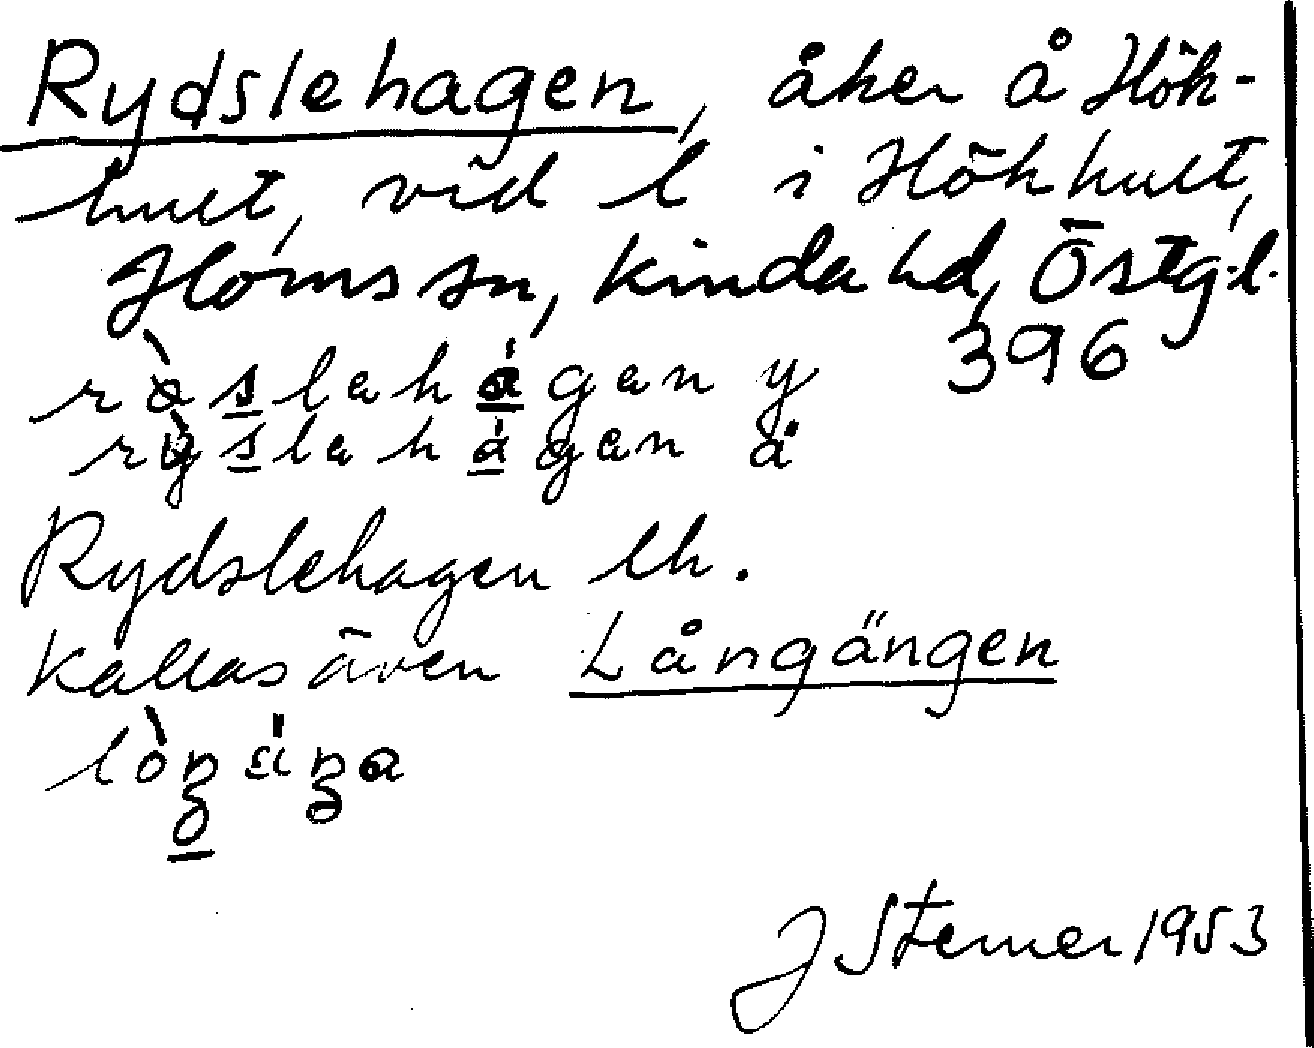 Rydslehagen, åker å Hök-
hult, vid l i Hökhult,
Horns sn, Kinda hd, Östg.l.
396
ròslahágan y
rỳslahágan ä
Rydslehagen lh.
Kallas även Långängen
J Sterner 1953